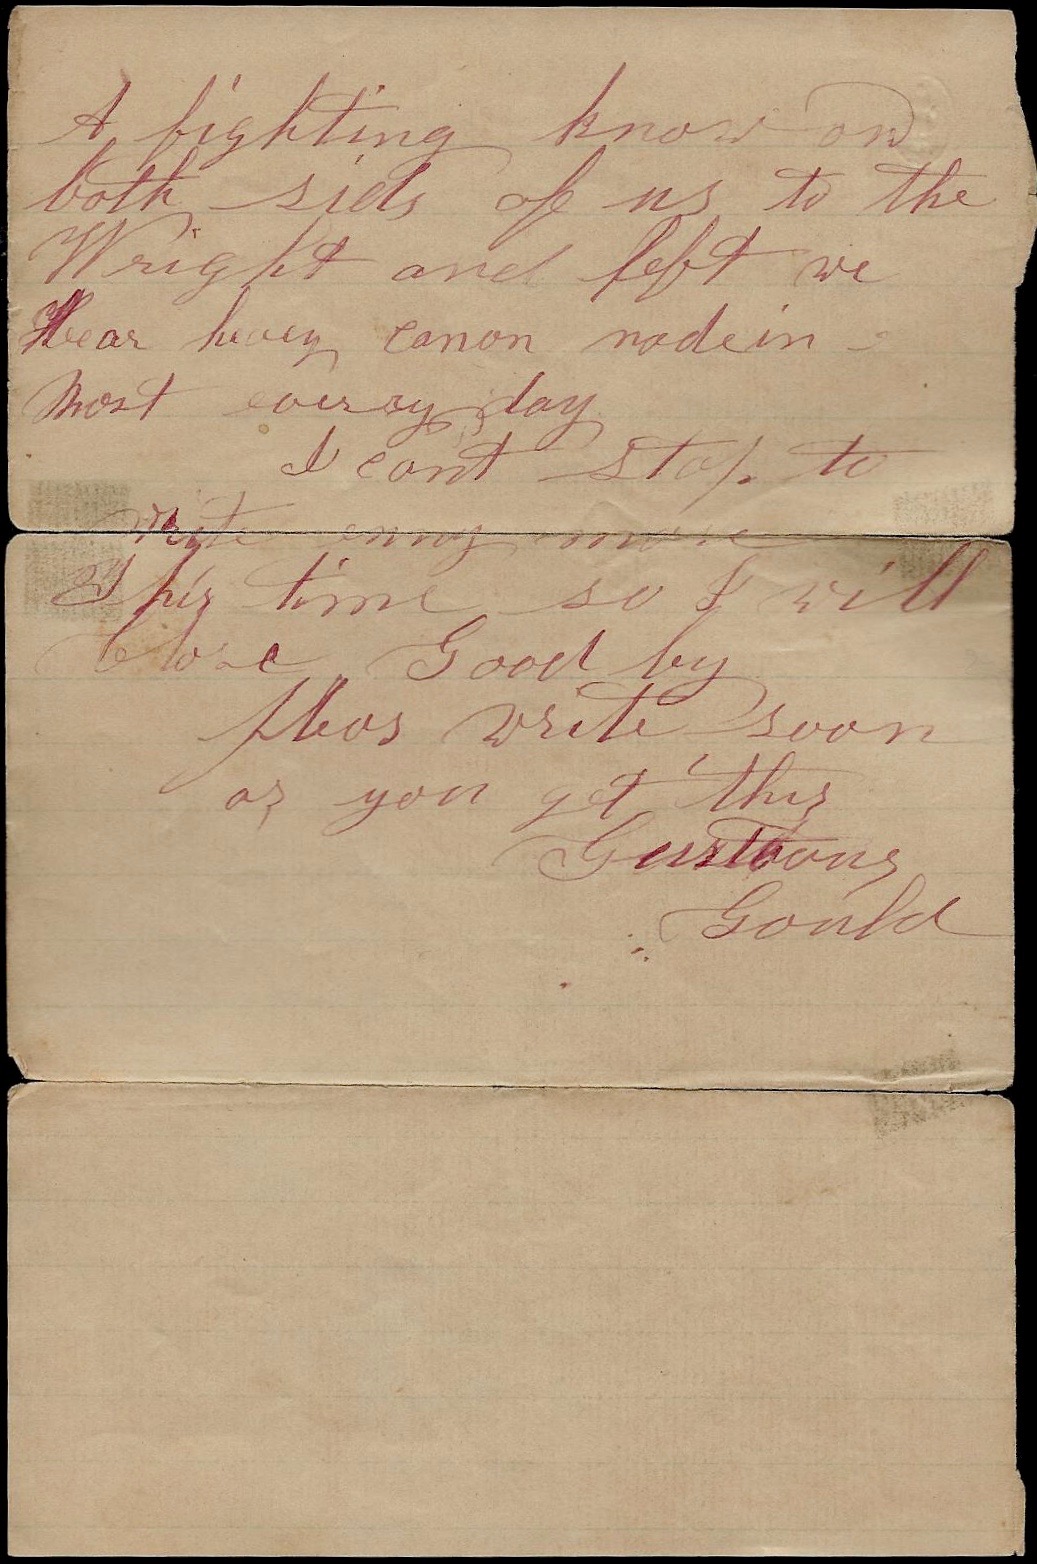 A fighting know on
both sids of us to the
Wright and left we
Hear hevey canon nodein
Most every day
I cant stop to
write enny more
This time so I will
Close Good by
pleas write soon
as you get this
Gustavus
Gould